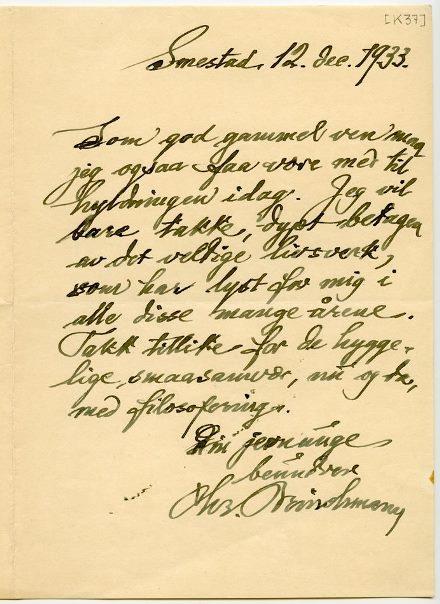 [K37]
Smestad, 12. dec. 1933.
Som god gammel ven maa
jeg ogsaa faa være med til
hyldningen idag. Jeg vil
bare takke, dypt betagen
av det veldige livsverk,
som har lyst for mig i
alle disse mange årene.
Takk tillike for de hygge-
lige, smaasamvær, nu og da,
med filosofering.
Din jevnunge
beundrer
Chr.